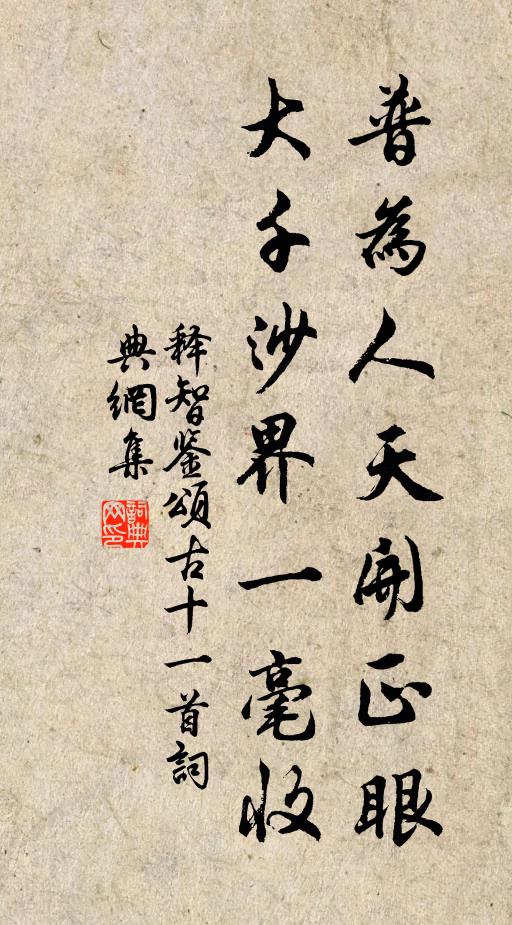 普為人天開正眼
大千沙界一毫收
释智鉴頌古十一首詞
典網集
詞典
网印